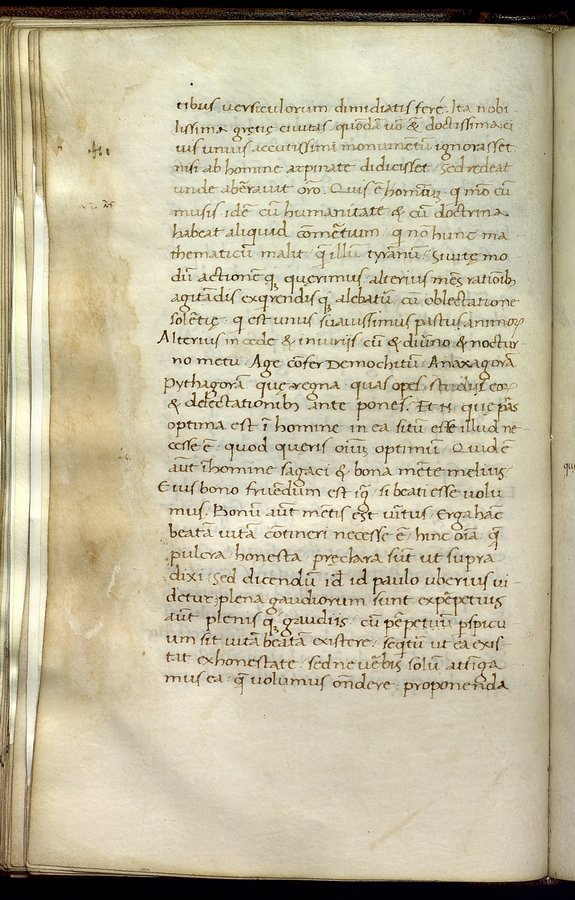 tibus versiculorum dimidiatis feré. Ita nobi
lissima gretię civitas quōdā vō & doctissima ci
vis unius accutissimi monumētū ignorasset
nisi ab homine arpinate didicisset. Sed redeat
unde aberavit oro. Quis ē hōm̄ q̄ mō cū
musis idē cū humanitate & cū doctrina
habeat aliquid cōmētium q̄ nō hunc ma
thematicū malit q̄ illū tyrānū. Si vitę mo
dū actionē q; querimus alterius mēs rationib;
agitādis exq̄rendis q; alebatur cū oblectatione
solētię q̄ est unus suavissimus pastus animoꝝ
Alterius in cede & iniuriis cū & diūno & noctur
no metu. Age cōfer Demochitū Anaxagorā
Pythagorā quę regna quas opes studiis eoꝝ
& delectationib; ante pones. Et .N. que pās
optima est ī homine in ea sitū esse illud ne
cesse ē quod queris oīum optimū. Quid ē
aūt ī homine sagaci & bona mēte melius
Eius bono fruēdum est igr̄ si beati esse volu
mus. Bonū aūt mētis est v̄irtus Erga hāc
beatā vitā cōtineri necesse ē hinc oīa q̄
pulcra honesta pręclara sūt ut supra
dixi Sed dicendū id paulo uberius vi
detur plena gaudiorum sunt ex pēpetuis
aūt plenis q; gaudiis cū pēpetuū pspicu
um sit vitā beatā existere seq̄tū ut ea exis
tat ex honestate. sed ne v̄bis solū attiga
mus ea q̄ volumus ōndere proponenda